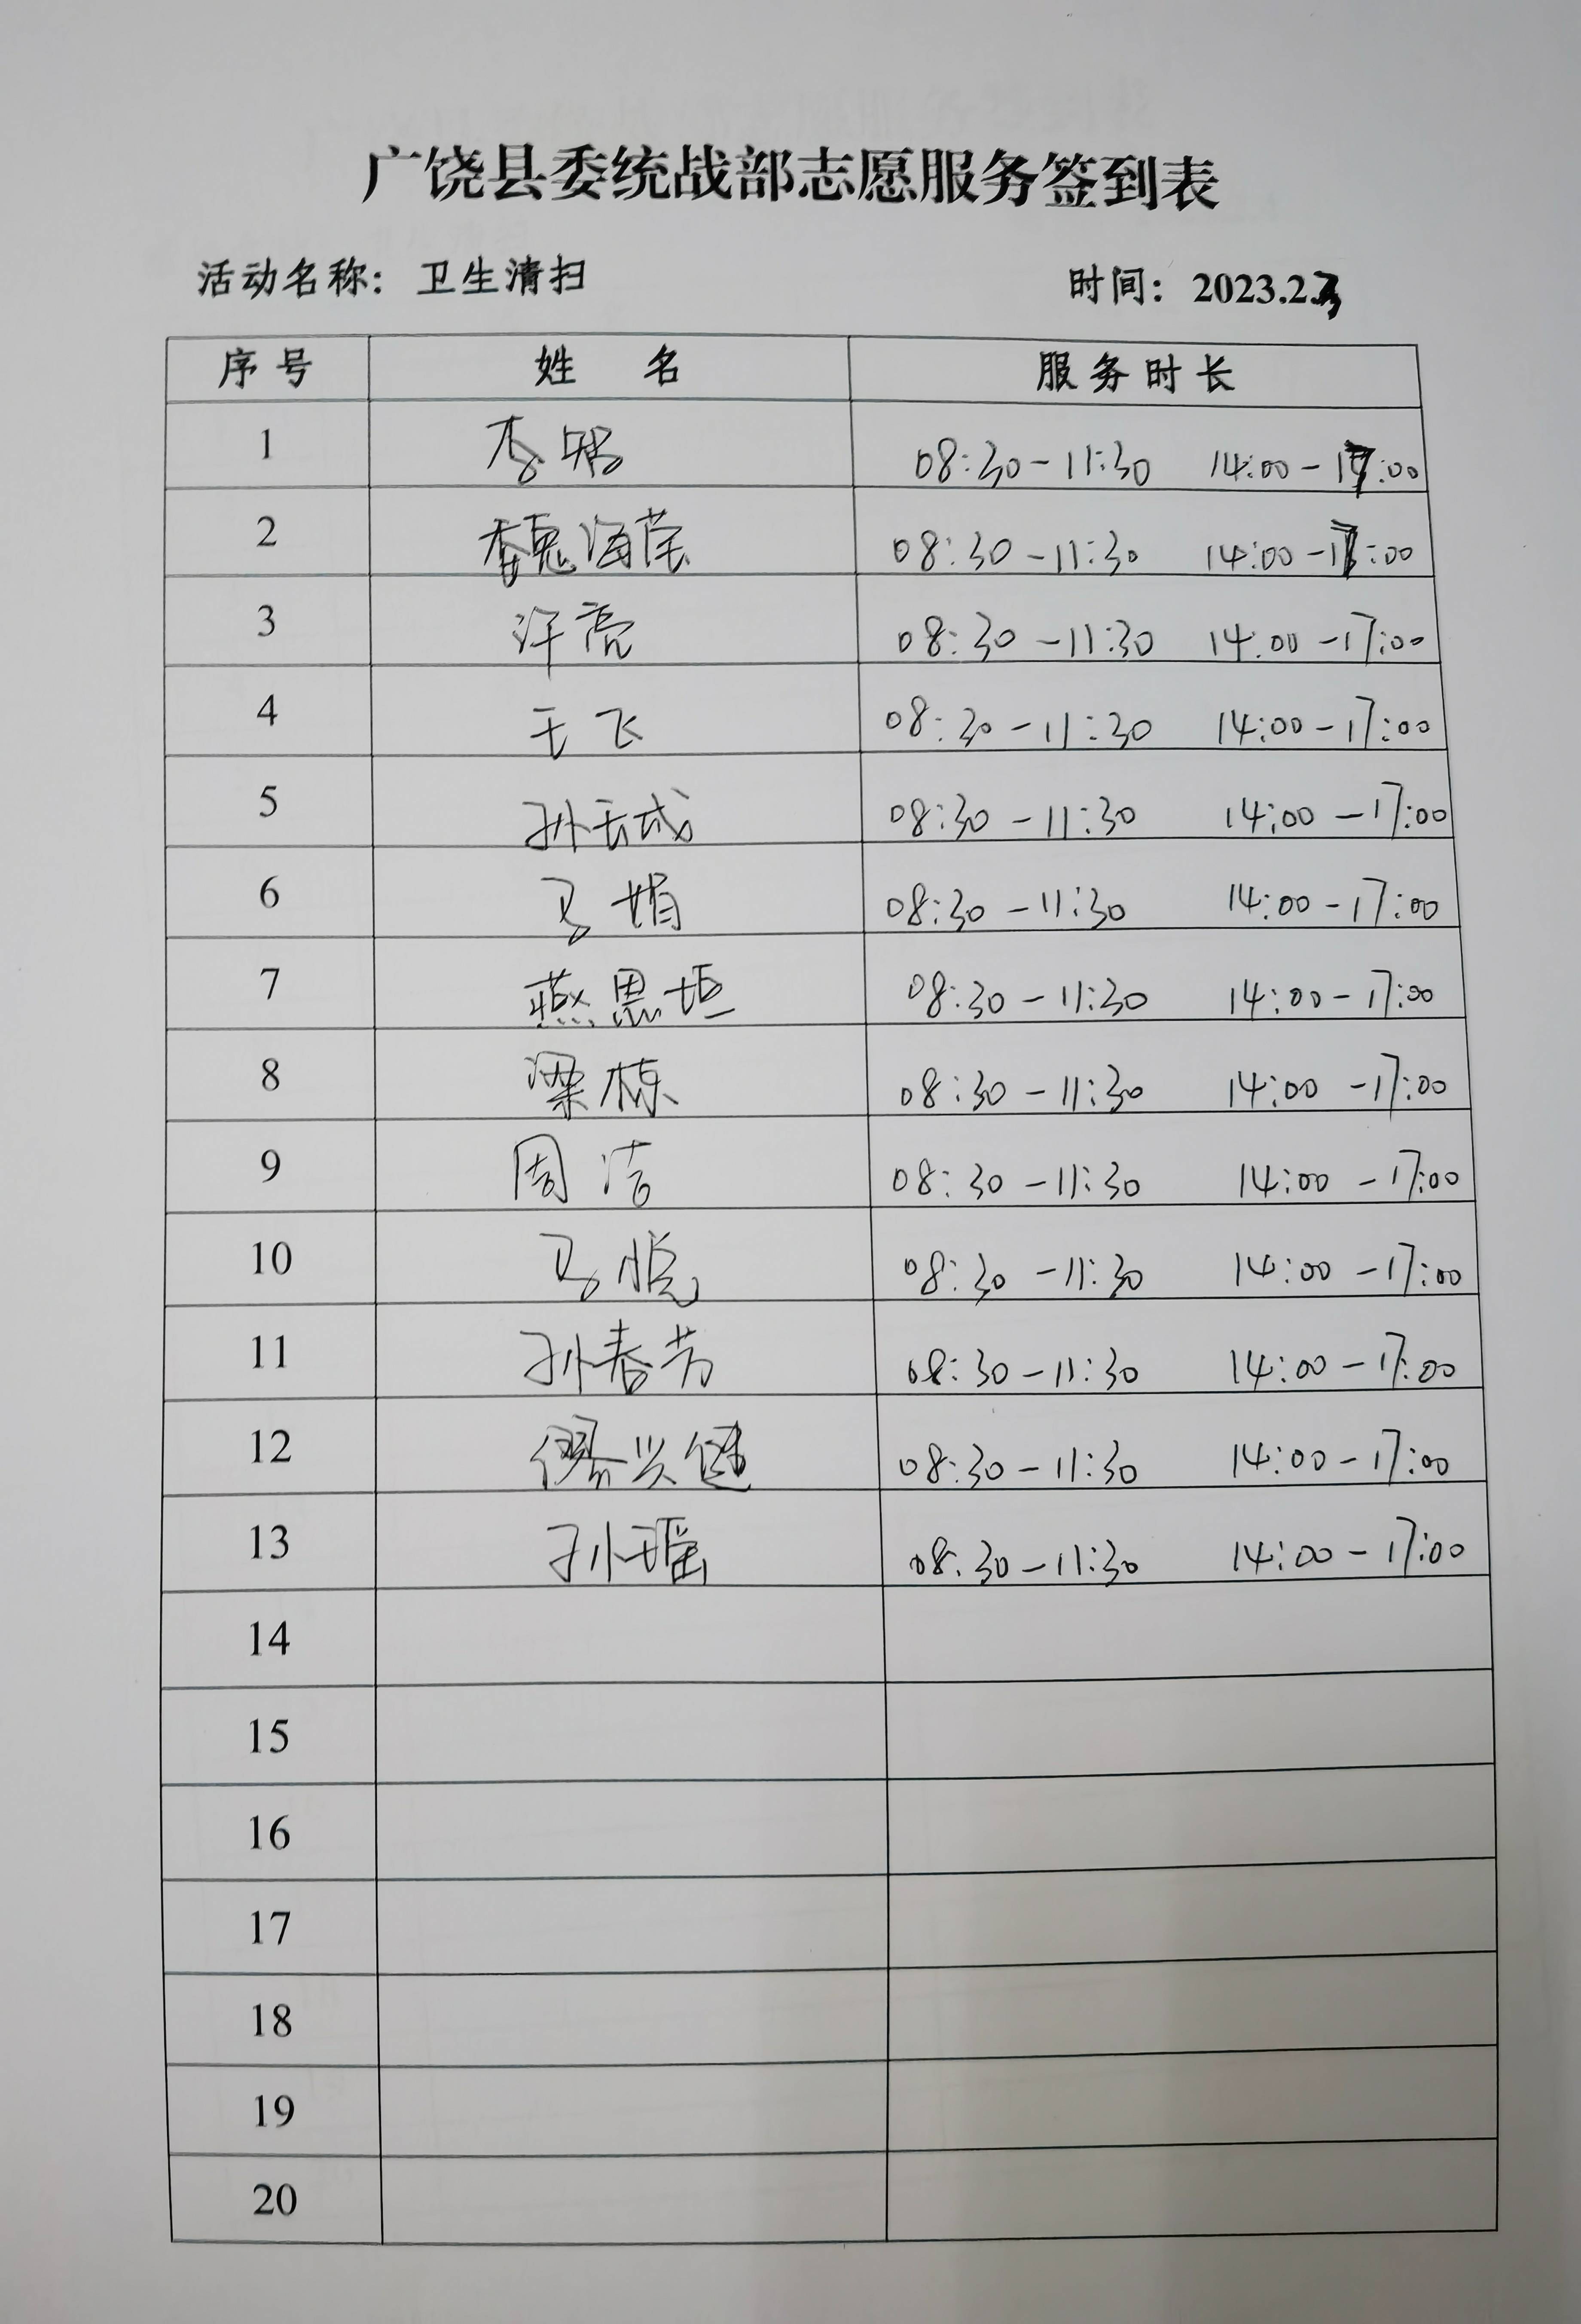 广饶县委统战部志愿服务签到表
活动名称：卫生清扫 时间：2023.2.3
序号 姓名 服务时长
1 李 08:30-11:30 14:00-17:00
2 魏海莹 08:30-11:30 14:00-17:00
3 许亮 08:30-11:30 14:00-17:00
4 王飞 08:30-11:30 14:00-17:00
5 孙玉成 08:30-11:30 14:00-17:00
6 马娟 08:30-11:30 14:00-17:00
7 燕思垣 08:30-11:30 14:00-17:00
8 梁栋 08:30-11:30 14:00-17:00
9 周洁 08:30-11:30 14:00-17:00
10 马悦 08:30-11:30 14:00-17:00
11 孙春芳 08:30-11:30 14:00-17:00
12 缪兴健 08:30-11:30 14:00-17:00
13 孙瑶 08:30-11:30 14:00-17:00
14
15
16
17
18
19
20